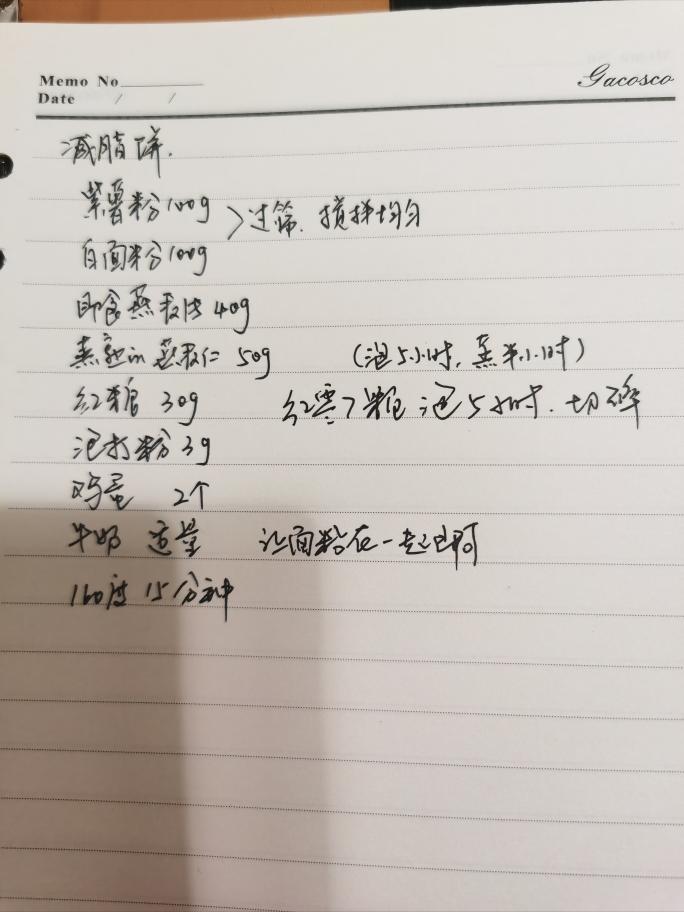 Memo No
Gacosco
Date / /
减脂饼.
紫薯粉100g
>过筛.搅拌均匀
白面粉100g
即食燕麦片40g
蒸熟的燕麦仁 50g (泡5小时,蒸半小时)
红糖 30g 红 泡5小时.切碎
泡打粉3g
鸡蛋 2个
牛奶 适量 让面粘在一起即可
160度 15分钟